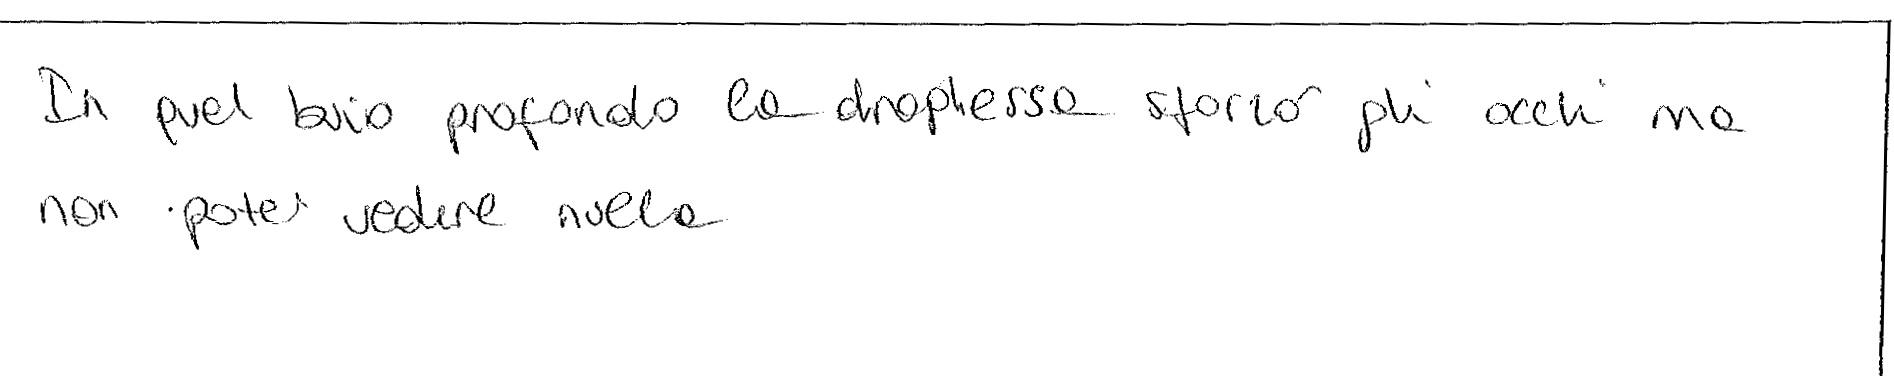 In quel buio profondo la draghessa sforzò gli occhi ma
non potei vedere nulla